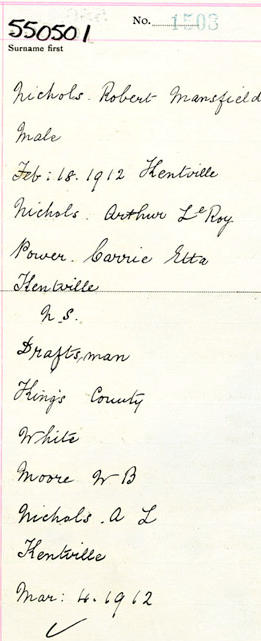 550501
No. 1503
Surname first
Nichols. Robert Mansfield
Male
Feb: 18. 1912 Kentville
Nichols. Arthur LeRoy
Power. Carrie Etta
Kentville
N.S.
Draftsman
King's County
White
Moore W B
Nichols. A L
Kentville
Mar: 4. 1912